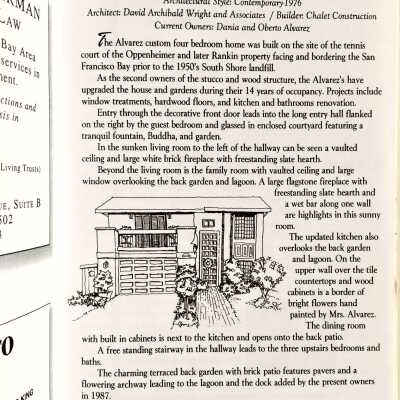 ERMAN
LAW
Bay Area
services in
ment.
ctions and
sis in
Living Trusts)
UE, SUITE B
502
3
ro
KING
Architectural Style: Contemporary 1976
Architect: David Archibald Wright and Associates / Builder: Chalet Construction
Current Owners: Dania and Oberto Alvarez
The Alvarez custom four bedroom home was built on the site of the tennis
court of the Oppenheimer and later Rankin property facing and bordering the San
Francisco Bay prior to the 1950's South Shore landfill.
As the second owners of the stucco and wood structure, the Alvarez's have
upgraded the house and gardens during their 14 years of occupancy. Projects include
window treatments, hardwood floors, and kitchen and bathrooms renovation.
Entry through the decorative front door leads into the long entry hall flanked
on the right by the guest bedroom and glassed in enclosed courtyard featuring a
tranquil fountain, Buddha, and garden.
In the sunken living room to the left of the hallway can be seen a vaulted
ceiling and large white brick fireplace with freestanding slate hearth.
Beyond the living room is the family room with vaulted ceiling and large
window overlooking the back garden and lagoon. A large flagstone fireplace with
freestanding slate hearth and
a wet bar along one wall
are highlights in this sunny
room.
The updated kitchen also
overlooks the back garden
and lagoon. On the
upper wall over the tile
countertops and wood
cabinets is a border of
bright flowers hand
painted by Mrs. Alvarez.
The dining room
with built in cabinets is next to the kitchen and opens onto the back patio.
A free standing stairway in the hallway leads to the three upstairs bedrooms and
baths.
The charming terraced back garden with brick patio features pavers and a
flowering archway leading to the lagoon and the dock added by the present owners
in 1987.